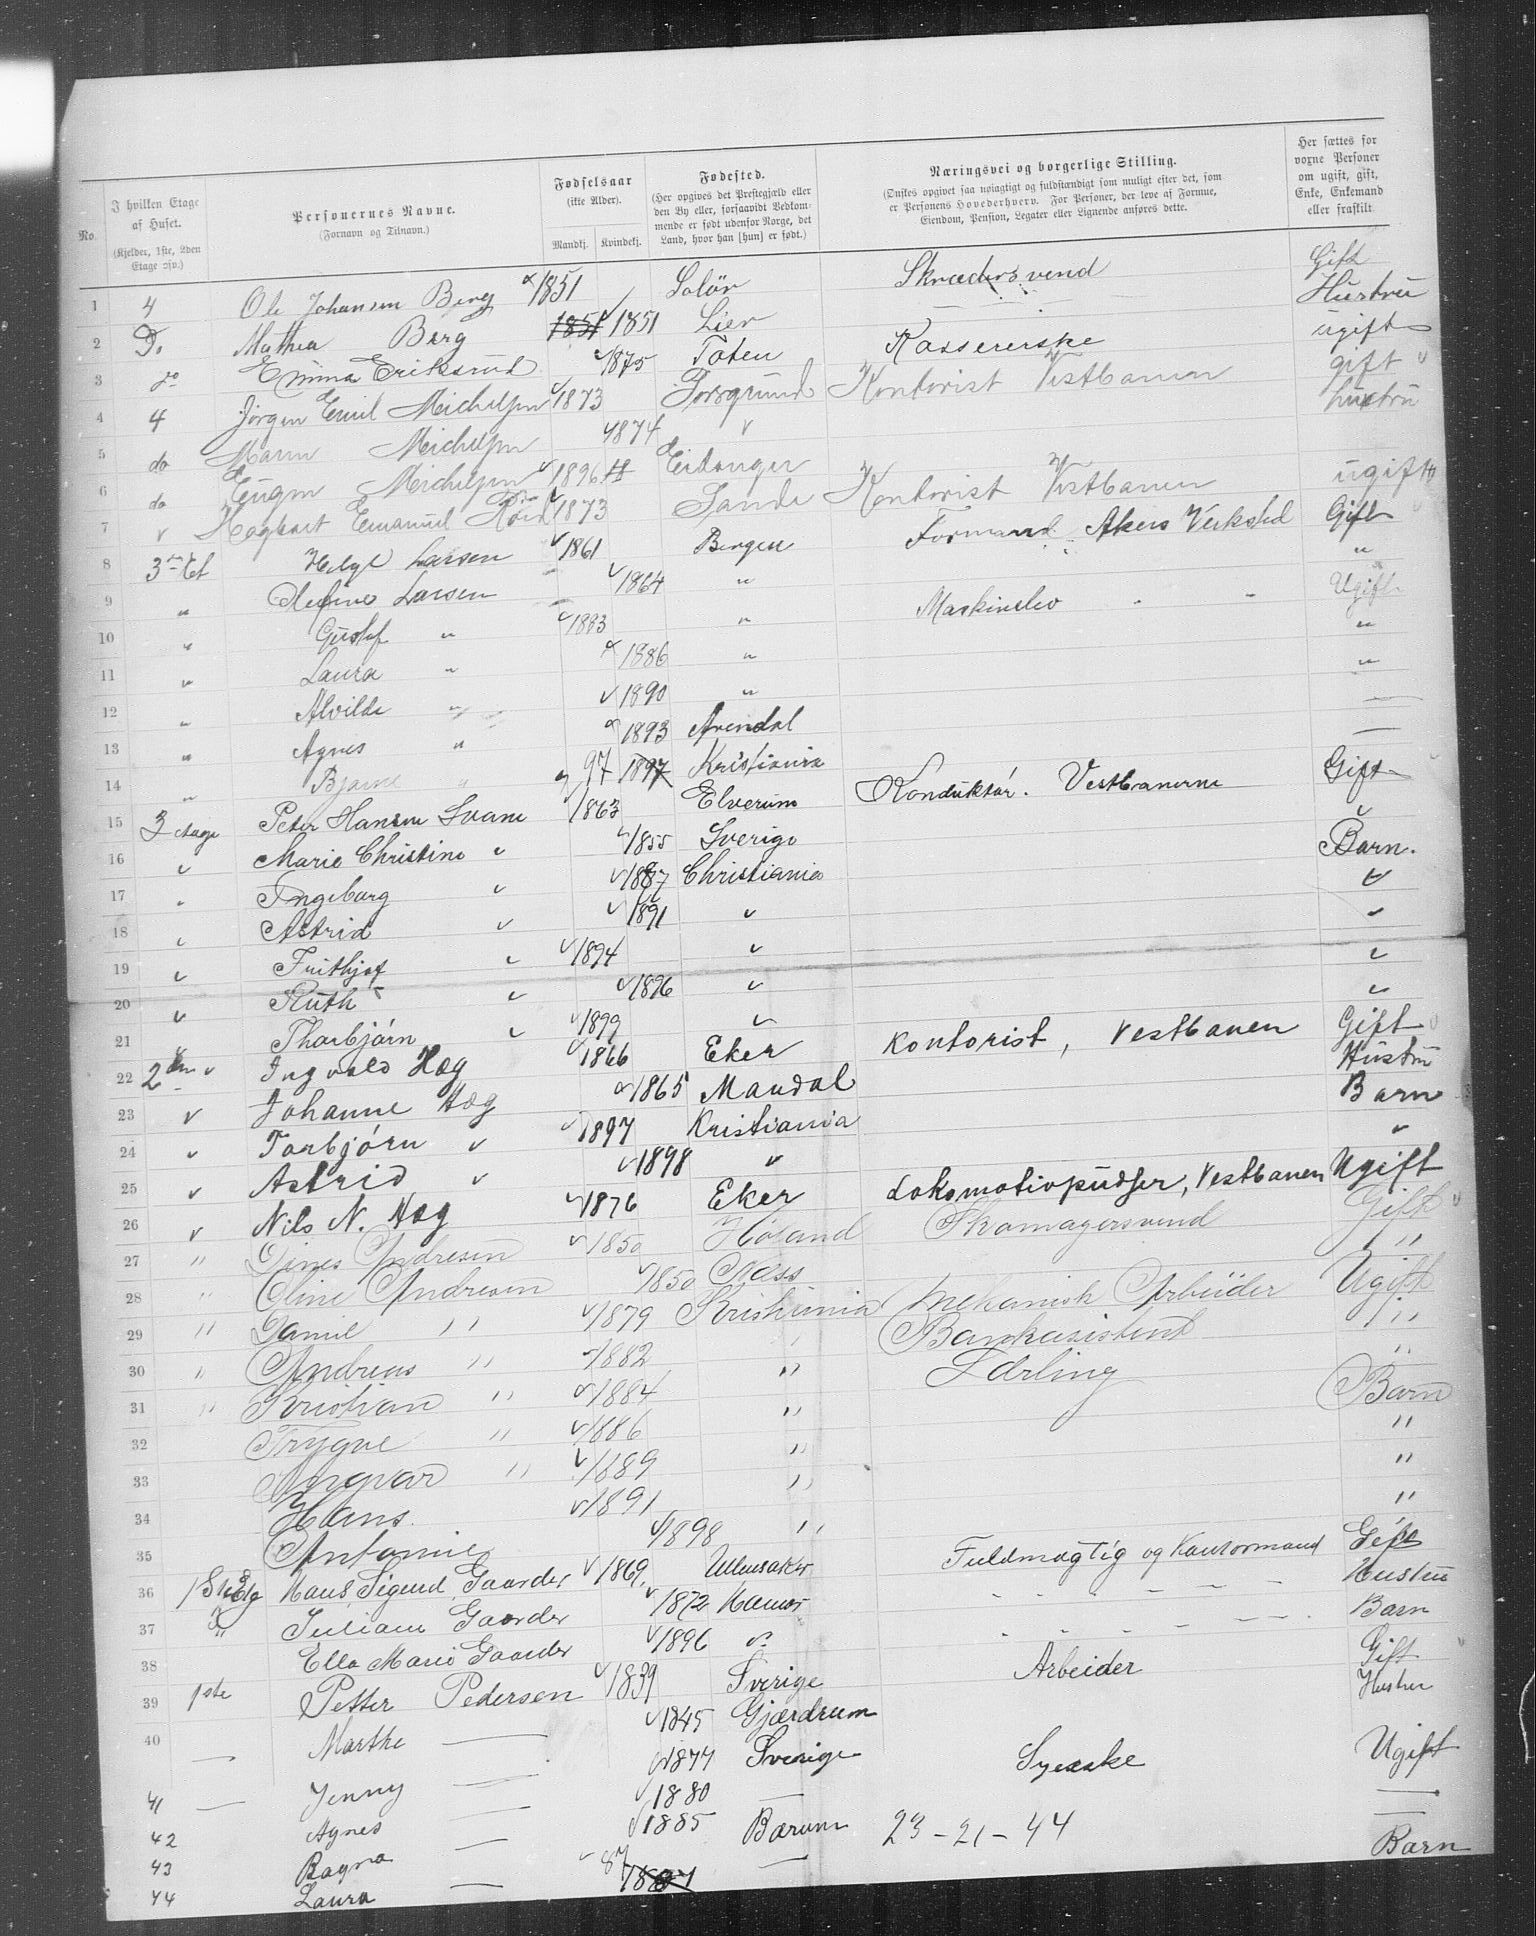 No. | I hvilken Etage af Huset. (Kjelder, 1ste, 2den Etage osv.) | Personernes Navne. (Fornavn og Tilnavn.) | Fødselsaar (ikke Alder). Mandkj. Kvindekj. | Fødested. (Her opgives det Prestegjæld eller den By eller, forsaavidt Vedkommende er født udenfor Norge, det Land, hvor han [hun] er født.) | Næringsvei og borgerlige Stilling. (Ønskes opgivet saa nøiagtigt og fuldstændigt som muligt efter det, som er Personens Hovederhverv. For Personer, der leve af Formue, Eiendom, Pension, Legater eller Lignende anføres dette. | Her sættes for voxne Personer om ugift, gift, Enke, Enkemand eller fraskilt.
1 4 Ole Johansen Berg 1851 Solør Skræddersvend Gift
2 Do Mathea Berg 1851 1851 Lier Hustru
3 do Emma Eriksrud 1875 Toten Kassererske ugift
4 4 Jörgen Emil Michelsen 1873 Porsgrund Kontorist Vestbanen gift
5 do Maren Michelsen 1874 " hustru
6 do Eugen Michelsen 1896 Eidanger
7 " Hagbart Emanuel 1873 Sande Kontorist Vestbanen ugift
8 3die Et Helge Larsen 1861 Bergen Formand Akers Verksted Gift
9 " Larsen 1864 " "
10 " Gustaf " 1883 " Maskinelev " " Ugift
11 " Laura " 1886 " "
12 " Alvilde " 1890 " "
13 " Agnes " 1893 Arendal —
14 " Bjarne " 97 1897 Kristiania —
15 3 etage Peter Hansen Svane 1863 Elverum Konduktør. Vestbanerne Gift
16 " Marie Christine " 1855 Sverige "
17 " Ingeborg " 1887 Christiania Barn.
18 " Astrid " 1891 " "
19 " Frithjof " 1894 " "
20 " Ruth " 1896 " "
21 " Thorbjørn " 1899 " "
22 2den " Ingvald Hæg 1866 Eker Kontorist, Vestbanen Gift
23 " Johanne Hæg 1865 Mandal Hustru
24 " Torbjørn " 1897 Kristiania Barn
25 " Astrid " 1898 " "
26 " Nils N. Hæg 1876 Eker Lokomotivpudser, Vestbanen Ugift
27 " Dines Andresen 1850 Høland Skomagersvend Gift
28 " Oline Andresen 1850 Næss "
29 " Daniel " 1879 Kristiania mekanisk Arbeider Ugift
30 " Andreas " 1882 " Bankasistent "
31 " Kristian " 1884 " Lærling "
32 Trygve " 1886 " Barn
33 Ingvar " 1889 " "
34 Hans 1891 " "
35 Antonie 1898 " "
36 1Ste Etg Hans Sigurd Gaarder 1869 Ullensaker Fuldmægtig og Kontormand Gift
37 " Juliane Gaarder 1872 Hamar " Hustru
38 Ella Marie Gaarder 1896 do " Barn
39 1ste Petter Pedersen 1839 Sverige Arbeider Gift
40 — Marthe — 1845 Gjærdrum Hustru
41 — Jenny — 1877 Sverige Syerske Ugift
42 Agnes — 1880 — —
43 Ragna — 1885 Bærum 23-21-44 —
44 Laura — 87 1887 — Barn